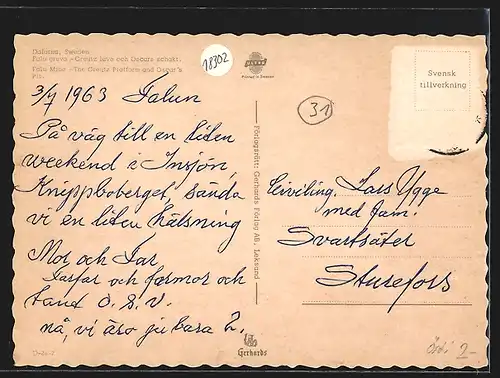 Dalarna, Sweden
Falu gruva – Creutz lave och Oscars schakt.
Falu Mine – The Creutz Platform and Oscar's
Pit.
18302
Printed in Sweden
31
Svensk
tillverkning
3/7 1963 Falun
På väg till en liten
weekend i Insjön,
Knippboberget, sända
vi en liten hälsning
Mor och Far
Farfar och farmor och
tand O.S.V.
nå, vi äro ju bara 2.
Förlagsrätt: Gerhards Förlag AB, Leksand
Civiling. Lars Ygge
med fam.
Svartsäter
Sturefors
Gerhards
2-